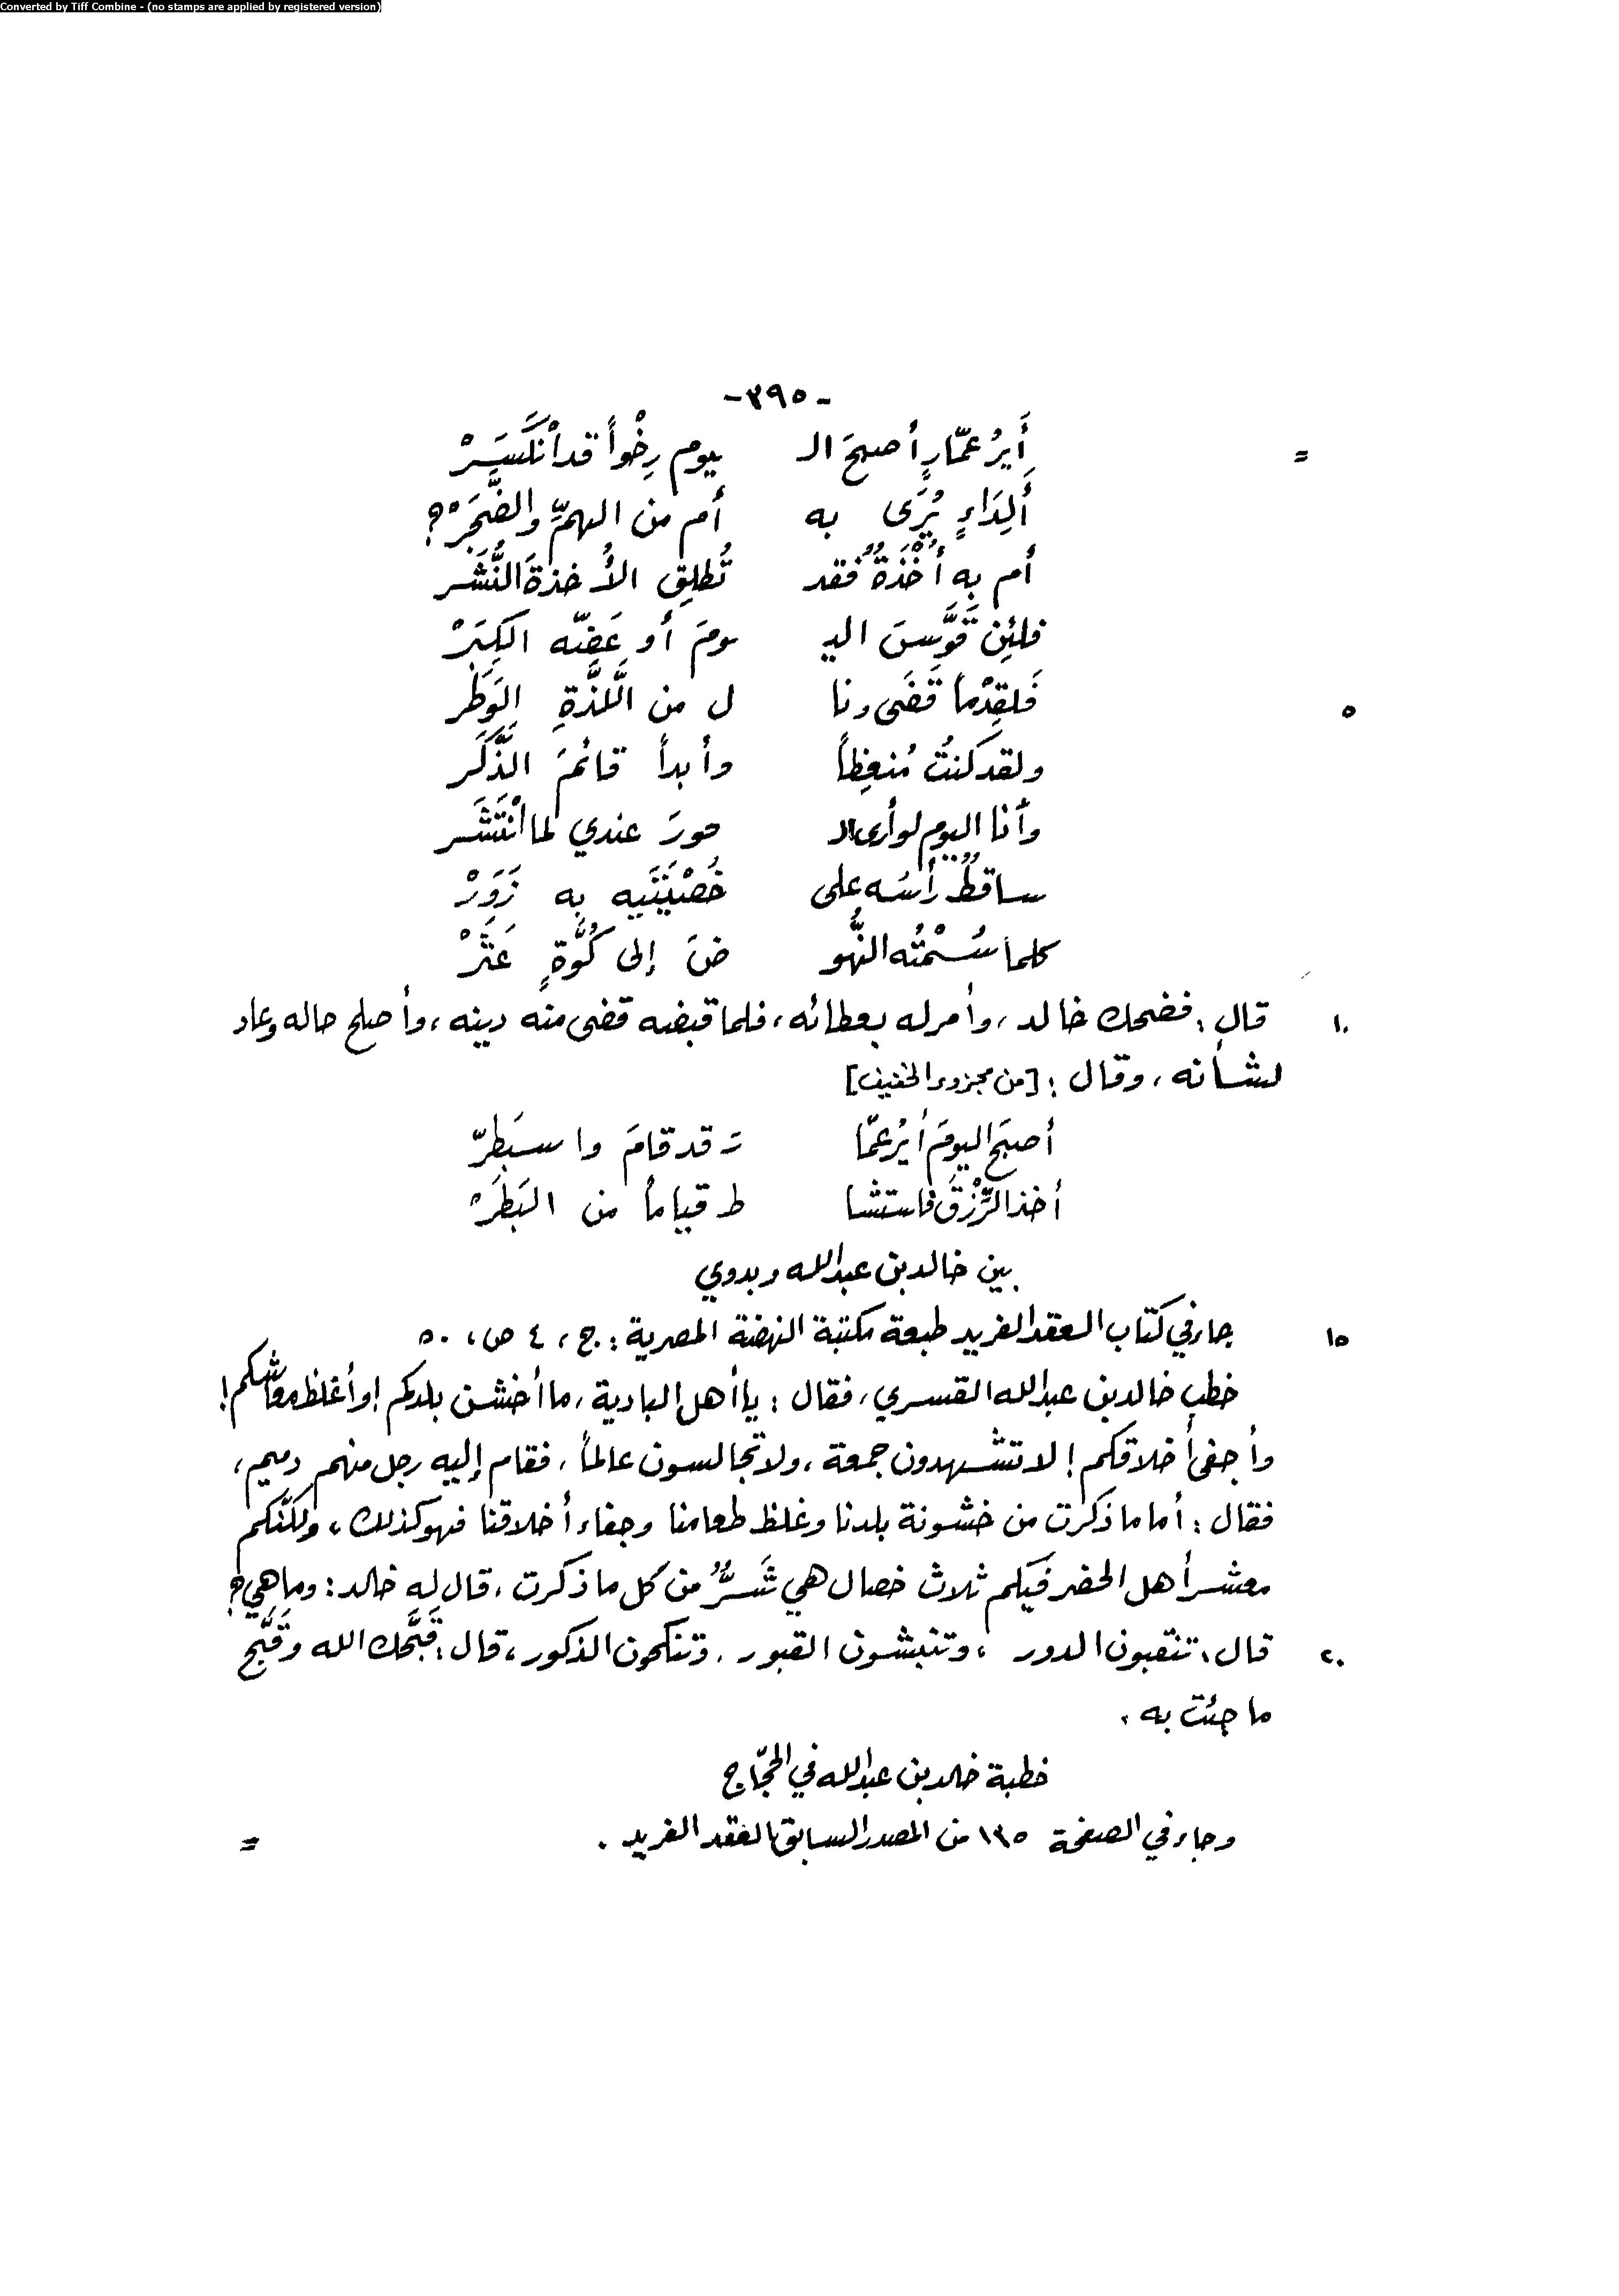 Converted by Tiff Combine - (no stamps are applied by registered version)
-٣٩٥-
= أَيرُ عمّارٍ أصبحَ الـ يوم رِخْواً قد انْكَسَرْ
أَلِدَاءٍ يُرَى به أم من الهمِّ والضَّجَرْ؟
أم به أُخْذَةٌ فقد تُطلِق الأُخذةَ النُّشَر
فلئن قَوَّسَ اليـ ـومَ أو عَضَّه الكِبَرْ
٥ فَلَقِدْماً قَضَى ونا ل من اللَّذَّةِ الوَطَر
ولقد كنتُ مُنعِظاً وأبداً قائمَ الذَّكَر
وأنا اليوم لو أرى الـ حورَ عندي لما انْتَشَر
ساقطٌ رأسُه على خُصْيَتَيه به زَوَرْ
كلما سُمْتُه النُّهو ضَ إلى كُوَّةٍ عَثَرْ
١٠ قال: فضحك خالد، وأمر له بعطائه، فلما قبضه قضى منه دينه، وأصلح حاله وعاد
لشأنه، وقال: [من مجزوء الخفيف]
أصبحَ اليومَ أيرُ عمّا رَ قد قامَ واسبَطرّ
أخذ الرِّزْقَ فاستشا ط قياماً من البَطَرْ
بين خالد بن عبد الله وبدوي
١٥ جاء في كتاب العقد الفريد طبعة مكتبة النهضة المصرية: ج، ٤ ص، ٥٠
خطب خالد بن عبد الله القسري، فقال: يا أهل البادية، ما أخشن بلدكم! وأغلظ معاشكم!
وأجفى أخلاقكم! لا تشهدون جمعة، ولا تجالسون عالماً، فقام إليه رجل منهم دميم،
فقال: أما ما ذكرت من خشونة بلدنا وغلظ طعامنا وجفاء أخلاقنا فهو كذلك، ولكنّكم
معشر أهل الحضر فيكم ثلاث خصال هي شَرٌّ من كل ما ذكرت، قال له خالد: وما هي؟
٢٠ قال: تنقبون الدور، وتنبشون القبور، وتنكحون الذكور، قال: قَبَّحك الله وقَبَّح
ما جئت به.
خطبة خالد بن عبد الله في الحجّاج
وجاء في الصفحة ١٣٥ من المصدر السابق العقد الفريد. =